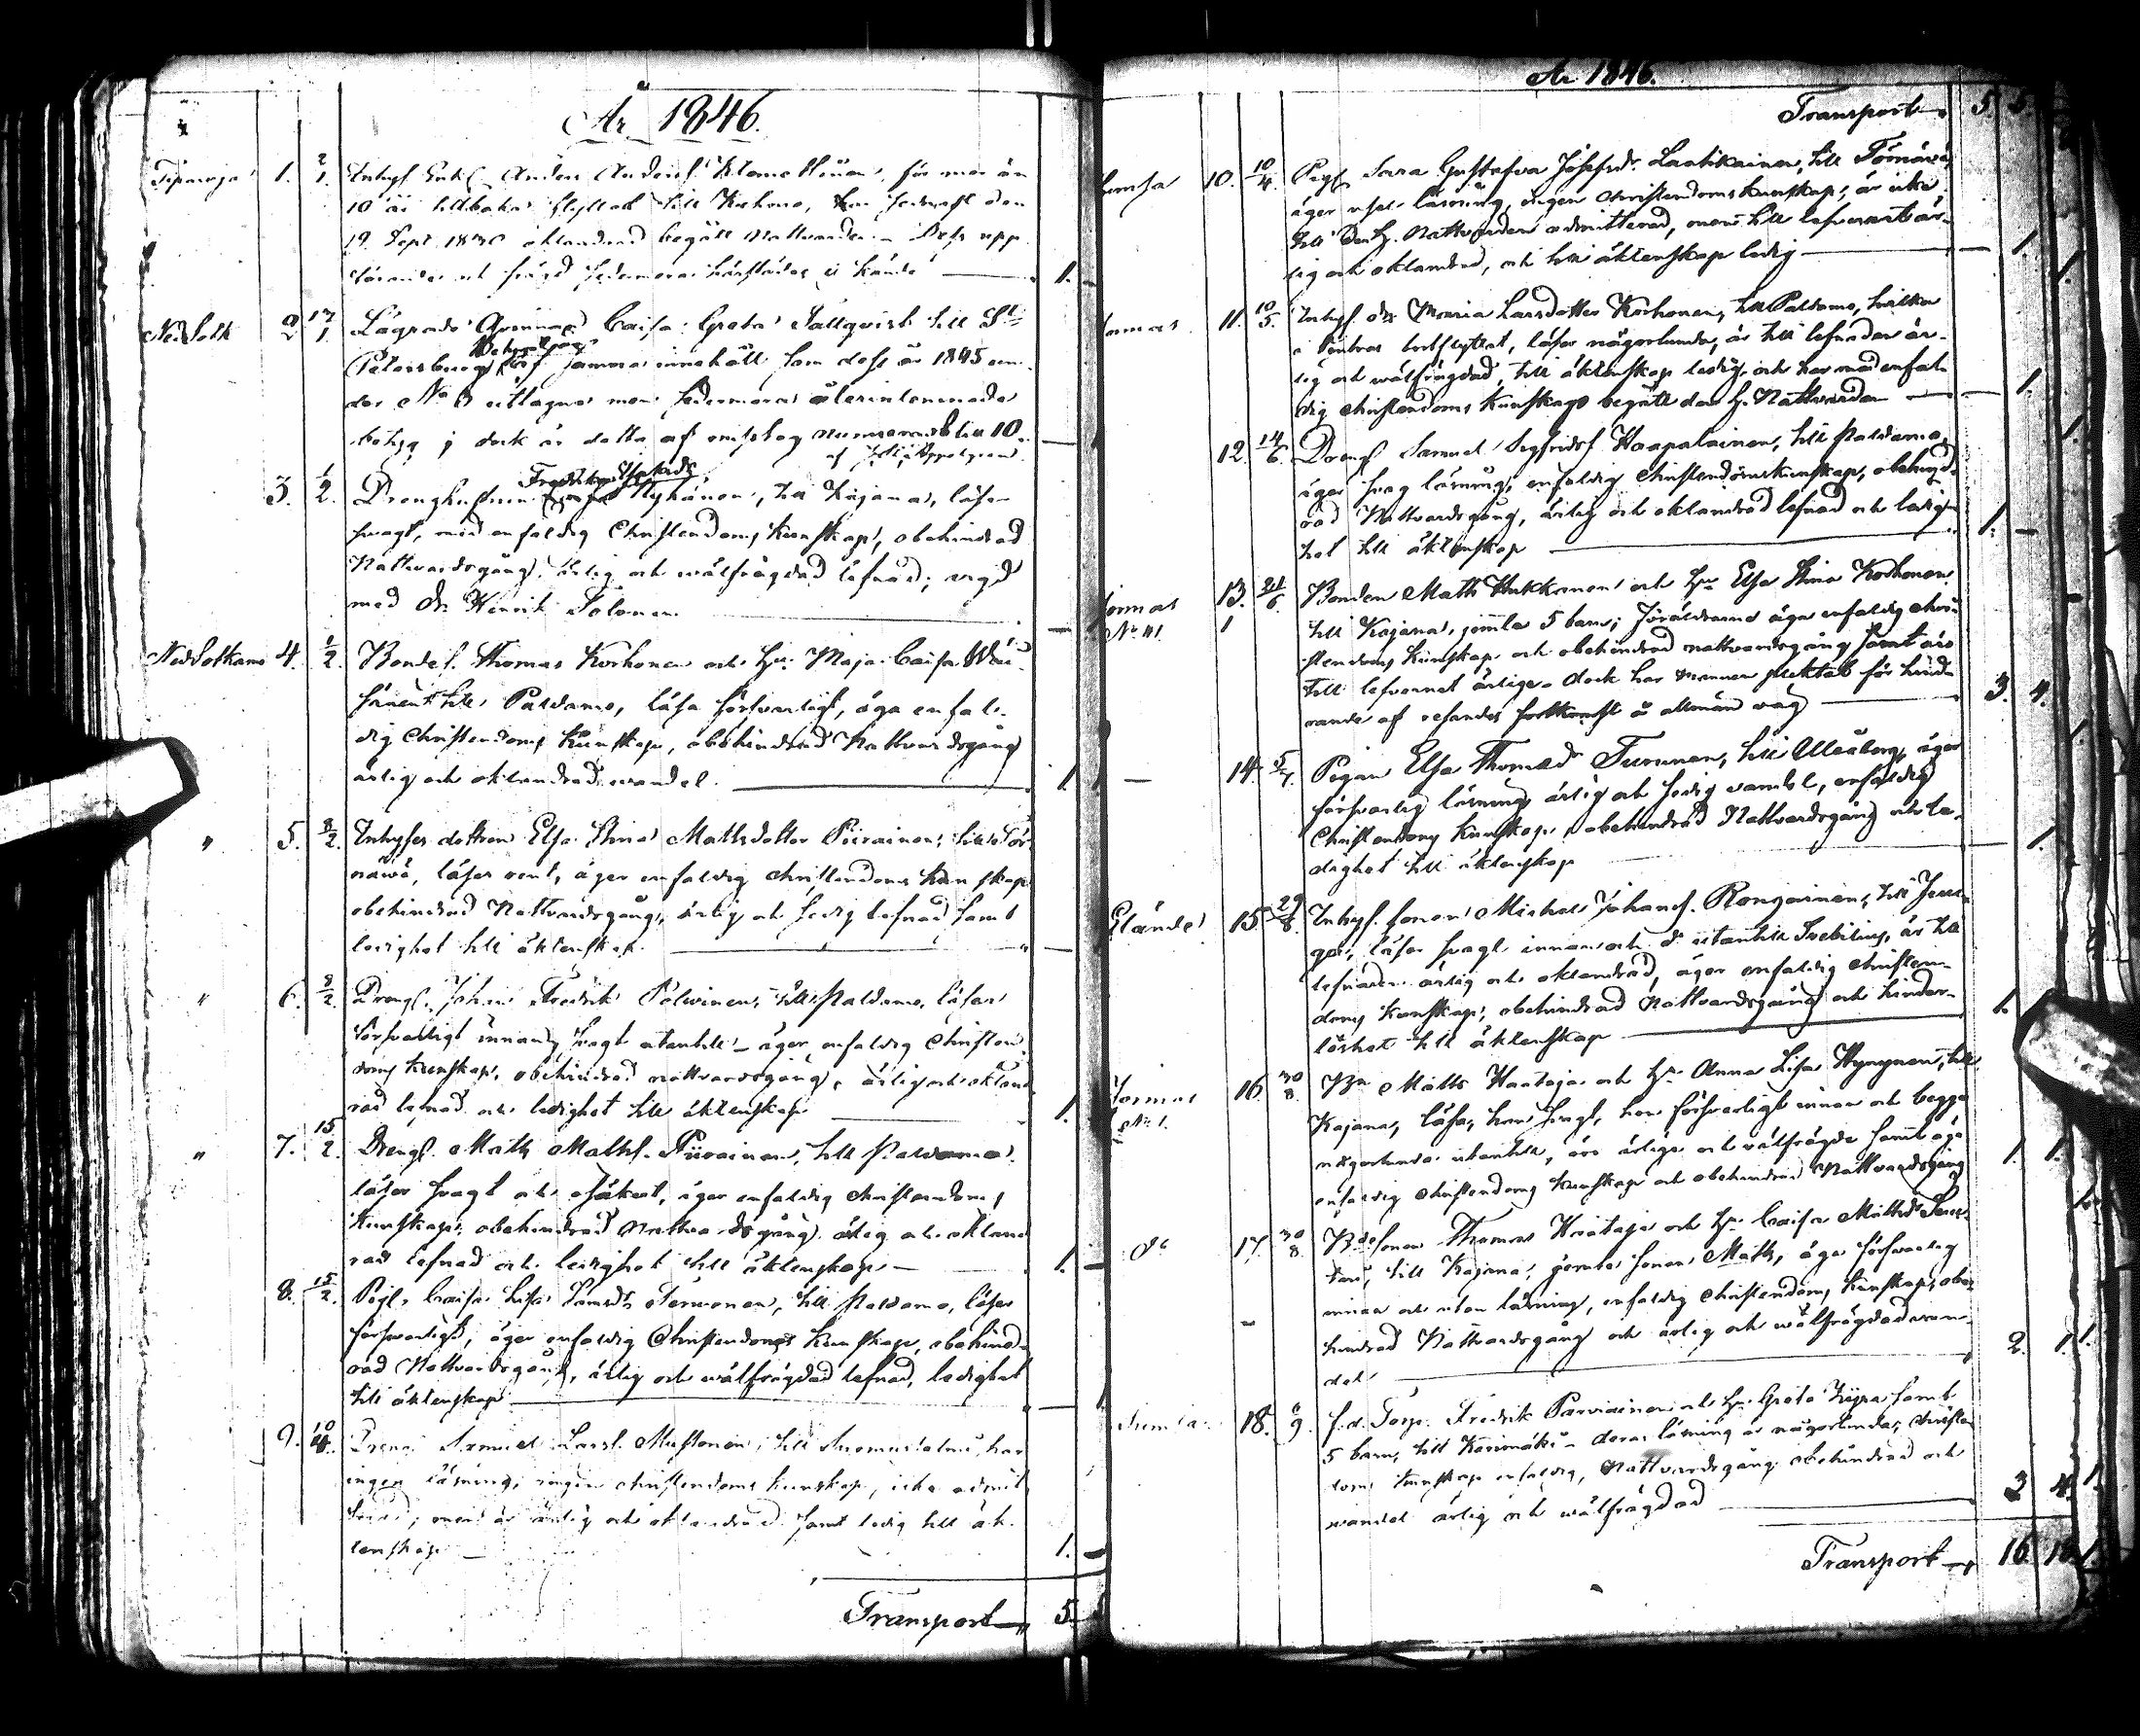 År 1846.
Tipasoja 1. 2/1. Inhys Enk. Anders Anders. för mer än
10 år tillbaka flyttad till Kuhmo, har sednast den
19 Sept. oklandrad begått Nattvarden – Dess upp-
förande och frägd sedermera härstädes ej kände 1.
Ned Sotk 2 17/1. Caisa Greta Sallqvist till St.
Petersburg, Betygets af samma innehåll som dess år 1845 un-
der No uttagna men sedermera återinlemnade
betyg; dock är detta af omslag numereradt Litt. 10.
3. 1/2. Drenghustrun Fredrika Nykänen, till Kajana, läser
svagt, med enfaldig Christendoms kunskap, obehindrad
Nattvardsgång, ärlig och wälfrägdad lefnad; vigd
med Dr. Henrik Solonen
Ned Sotkamo 4. 1/2. Bondes. Thomas Korhonen och Hu. Maja Caisa
till Paldamo, läsa försvarligt, äga enfal-
dig Christendoms Kunskap, obehindrad Nattvardsgång
ärlig och oklandrad wandel. 1
" 5. 8/2. Inhyses dottren Elsa Stina Mattsdotter Piirainen, till Tör-
näwä, läser rent, äger enfaldig christendoms kunskap
obehindrad Nattvardsgång, ärlig och sedig lefnad samt
ledighet till äktenskap.
" 6. 8/2. Drengs. Johan Fredrik Polvinen, till Paldamo, läser
försvarligt innan, svagt utantill – äger enfaldig Christen-
doms kunskap, obehindrad nattvardsgång, ärlig och okland-
rad lefnad och ledighet till äktenskap 1.
" 7. 15/2. Drengs. Matts Matts. Piirainen, till Paldamo,
läser svagt och osäkert, äger enfaldig christendoms
kunskap, obehindrad nattvardsgång, ärlig och okland
rad lefnad och ledighet till äktenskap – 1.
8. 15/2. Pig. Caisa Lisa Tervonen, till Paldamo, läser
försvarligt, äger enfaldig Christendoms kunskap, obehind-
rad Nattvardsgång, ärlig och wälfrägdad lefnad, ledighet
till äktenskap 1
9. 10/4. Dreng. Samuel Larss. Mustonen, till Suomussalmi, har
ingen läsning, ringa christendoms kunskap, icke admit-
terad, men är ärlig och oklandrad samt ledig till äk-
tenskap 1.
Transport 5
År 1846.
Transport 5. 5.
10. 10/4. Pig. Sara Gustafva Josefsdr. Laatikainen, till Törnävä,
äger usel läsning, ringa christendoms kunskap, är icke
till den H. Nattvarden admitterad, men till lefvernet är-
lig och oklandrad, och till äktenskap ledig 1.
Jormas 11. 10/5. Inhys. dr. Maria Larsdotter Korhonen, till Paldamo, hvilken
i vintras bortflyttat, läser någorlunda, är till lefnaden är-
lig och wälfrägdad, till äktenskap ledig, och har med enfal-
dig christendoms kunskap begått den H. Nattvarden 1.
12. 14/6. Drengs. Samuel Sigfridss. Haapalainen, till Paldamo,
äger svag läsning, enfaldig Christendoms kunskap, obehind-
rad Nattvardsgång, ärlig och oklandrad lefnad och ledig-
het till äktenskap 1.
Jormas No 41. 13. 21/6. Bonden Matts Hukkonen och Hu. Elsa Stina Korhonen
till Kajana, jemte 5 barn; Föräldrarna äga enfaldig chri-
stendoms kunskap och obehindrad nattvardsgång samt äro
till lefvernet ärlige – dock har mannen pliktat för hind-
rande af resandes fortkomst å allmän wäg 3. 4.
– 14. 5/7. Pigan Elsa Thomasdr. Turunen, till Uleåborg, äger
försvarlig läsning, ärlig och sedig vandel, enfaldig
Christendoms kunskap, obehindrad Nattvardsgång och le-
dighet till äktenskap 1.
15. 29/8. Inhys. sonen Michel Johans. till
läser svagt innan och utantill, är till
lefnaden ärlig och oklandrad, äger enfaldig christen-
doms kunskap, obehindrad Nattvardsgång och hinder-
löshet till äktenskap 1.
Jormas No 1. 16. 30/8. Bn. Matts Haataja och Hu. Anna Lisa Hyvynen, till
Kajana, läsa, han svagt, hon försvarligt innan och begge
någorlunda utantill, äro ärlige och wälfrägde samt äga
enfaldig christendoms kunskap och obehindrad Nattvardsgång 1. 1.
do 17. 30/8. Bdesonen Thomas Haataja och Hu. Caisa Mattsdr.
till Kajana, jemte sonen Matts, äga försvarlig
innan och utan läsning, enfaldig christendoms kunskap, obe-
hindrad Nattvardsgång och ärlig och wälfrägdad wan-
del 2. 1.
18. 6/9. f.d. Torp. Fredrik Parviainen och Hu. Greta samt
5 barn, till – deras läsning är någorlunda, christen-
doms kunskap enfaldig, Nattvardsgång obehindrad och
wandel ärlig och wälfrägdad 3 4.
Transport 16. 18.